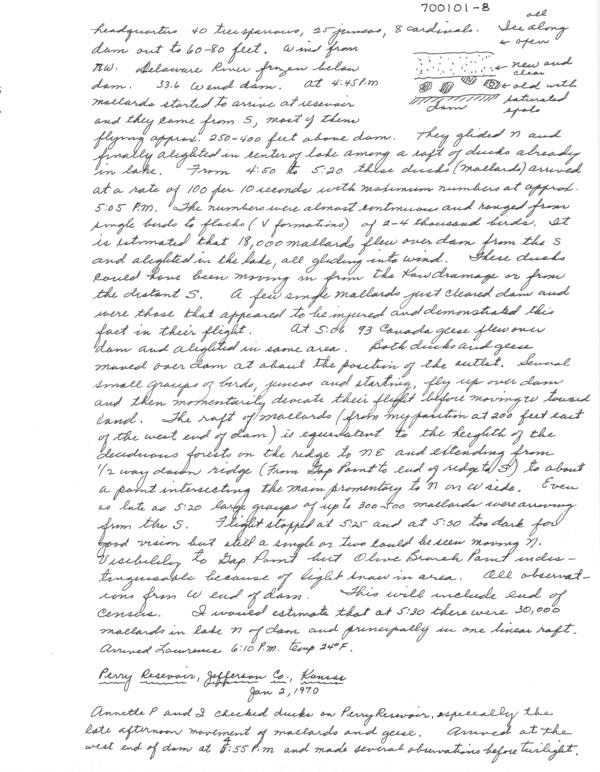 700101-8
headquarters 40 tree sparrows, 25 juncos, 8 cardinals. Ice along
dam out to 60-80 feet. Wind from
NW. Delaware River frozen below
dam. 33.6 W end dam. At 4:45 P.M
mallards started to arrive at resevoir
and they came from S, most of them
all
open
new and
clear
old with
saturated
spots
dam
flying approx. 250-400 feet above dam. They glided N and
finally alighted in center of lake among a raft of ducks already
in lake. From 4:50 to 5:20 these ducks (mallards) arrived
at a rate of 100 per 10 seconds with maximum numbers at approx.
5:05 P.M. The numbers were almost continuous and ranged from
single birds to flocks (V formations) of 2-4 thousand birds. It
is estimated that 18,000 mallards flew over dam from the S
and alighted in the lake, all gliding into wind. These ducks
could have been moving in from the Kaw drainage or from
the distant S. A few single mallards just cleared dam and
were those that appeared to be injured and demonstrated this
fact in their flight. At 5:06 93 Canada geese flew over
dam and alighted in same area. Both ducks and geese
moved over dam at about the position of the outlet. Several
small groups of birds, juncos and starling, fly up over dam
and then momentarily deviate their flight before moving W toward
land. The raft of mallards (from my position at 200 feet east
of the west end of dam) is equivalent to the heighth of the
deciduous forest on the ridge to NE and extending from
1/2 way down ridge (From Gap Point to end of ridge to S) to about
a point intersecting the main promontory to N on W side. Even
as late as 5:20 large groups of up to 300-500 mallards were arriving
from the S. Flight stopped at 5:25 and at 5:30 too dark for
good vision but still a single or two could be seen moving N.
Visibility to Gap Point but Olive Branch Point indis-
tinguisable because of light snow in area. All observat-
ions from W end of dam. This will include end of
Census. I would estimate that at 5:30 there were 30,000
mallards in lake N of dam and principally in one linear raft.
Arrived Lawrence 6:10 P.M. temp 24°F.
Perry Resevoir, Jefferson Co., Kansas
Jan 2, 1970
Annette P and I checked ducks on Perry Resevoir, especially the
late afternoon movement of mallards and geese. Arrived at the
west end of dam at 4:55 P.M and made several observations before twilight.